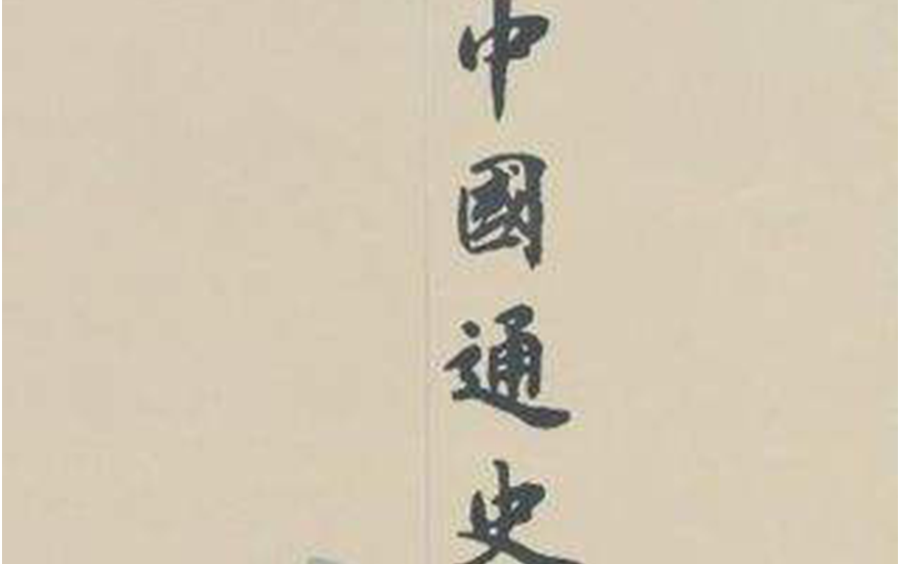 中國通史